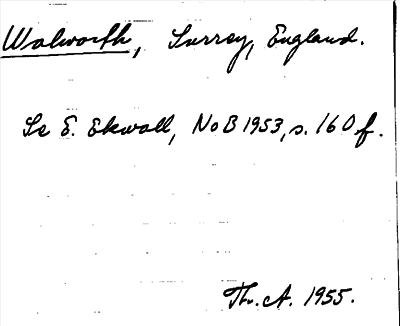 Walworth, Surrey, England.
Se E. Ekwall, NoB 1953, s. 160 f.
Th. A. 1955.